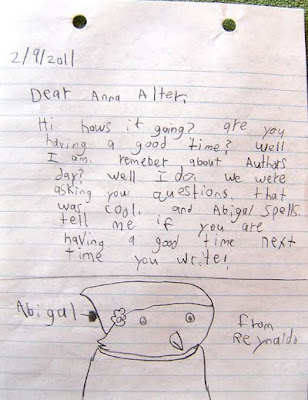 2/9/2011
Dear Anna Alter,
Hi hows it going? are you
having a good time? well
I am. remeber about Authors
day? well I do. we were
asking you questions. that
was cool. and Abigal spells
tell me if you are
having a good time next
time you write!
Abigal
from
Reynaldo